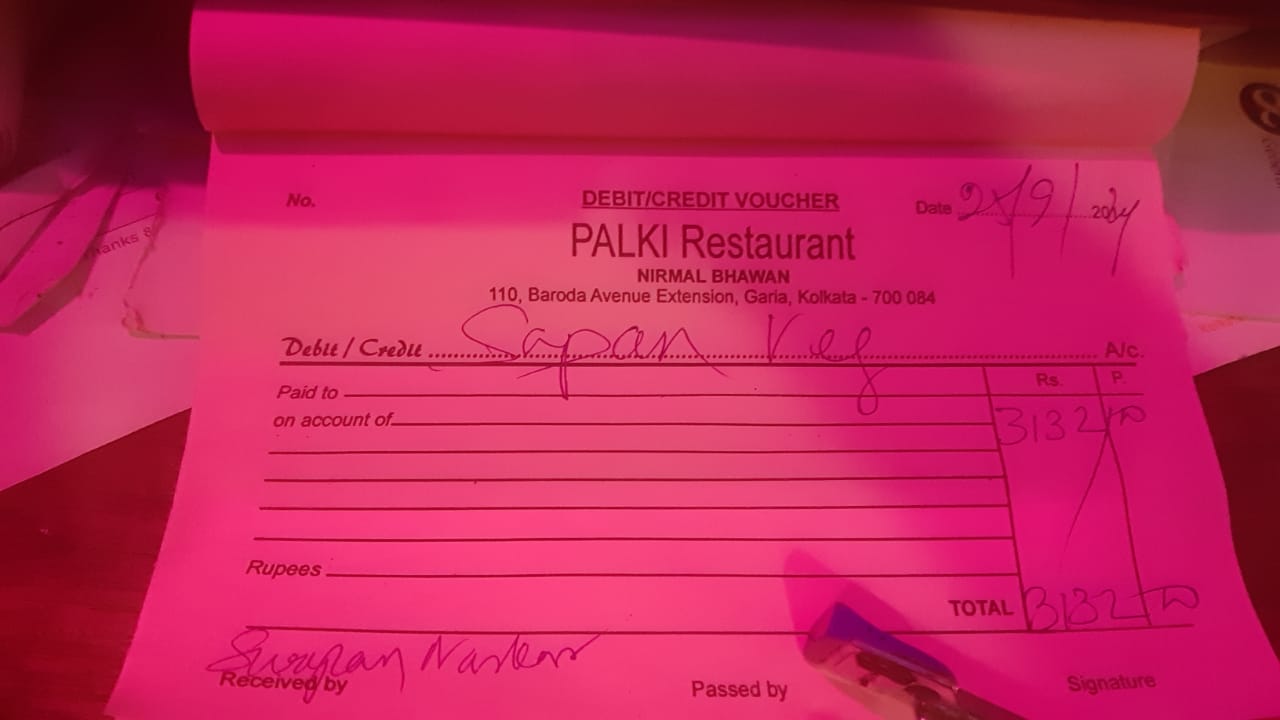 No. DEBIT/CREDIT VOUCHER Date 25/9/2024
PALKI Restaurant
NIRMAL BHAWAN
110, Baroda Avenue Extension, Garia, Kolkata - 700 084
Debit / Credit Sapan Veg A/c.
Rs. P.
Paid to
on account of 3132/00
Rupees
TOTAL 3132/00
Swapan Naskar
Received by Passed by Signature